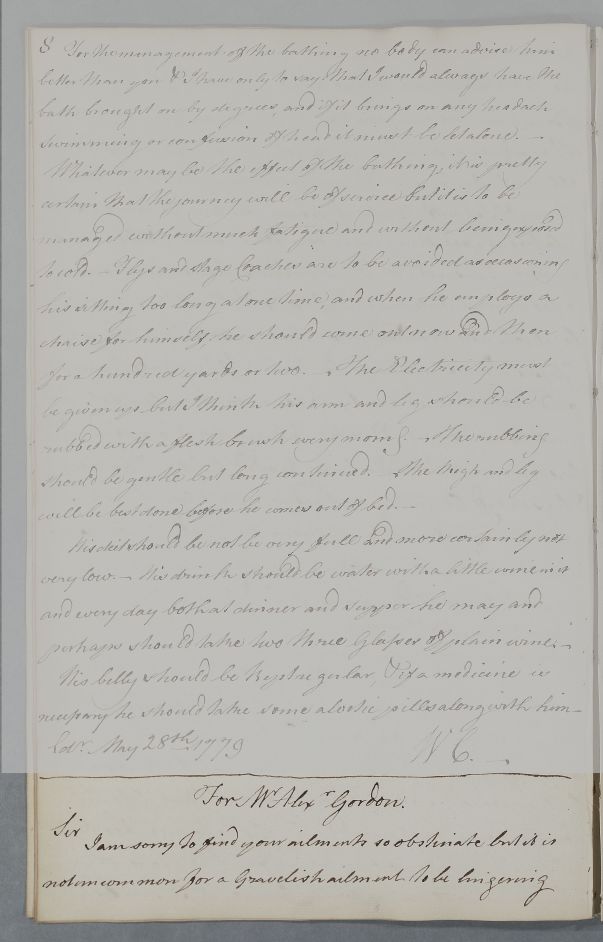 8 For the management of the bathing no body can advise him
better than you & I have only to say that I would always have the
bath brought on by degrees, and if it brings on any headach
swimming or confusion of head it must be let alone. —
Whatever may be the effect of the bathing, it is pretty
certain that the journey will be of service but it is to be
managed without much fatigue and without being exposed
to cold. — Flys and stage Coaches are to be avoided as occasioning
his sitting too long at one time, and when he employs a
chaise for himself he should come out now and then
for a hundred yards or two. — The Electricity must
be given up but I think his arm and leg should be
rubbed with a flesh brush every morng. — The rubbing
should be gentle but long continued. The thigh and leg
will be best done before he comes out of bed. —
His diet should be not be very full and more certainly not
very low. — His drink should be water with a little wine in it
and every day both at dinner and supper he may and
perhaps should take two three Glasses of plain wine. —
His belly should be kept regular, & if a medicine is
necessary he should take some aloetic pills along with him —
Edr. May 28th. 1779 W C. —
For Mr Alexr Gordon.
Sir
I am sorry to find your ailments so obstinate but it is
not uncommon for a Gravelish ailment to be lingering